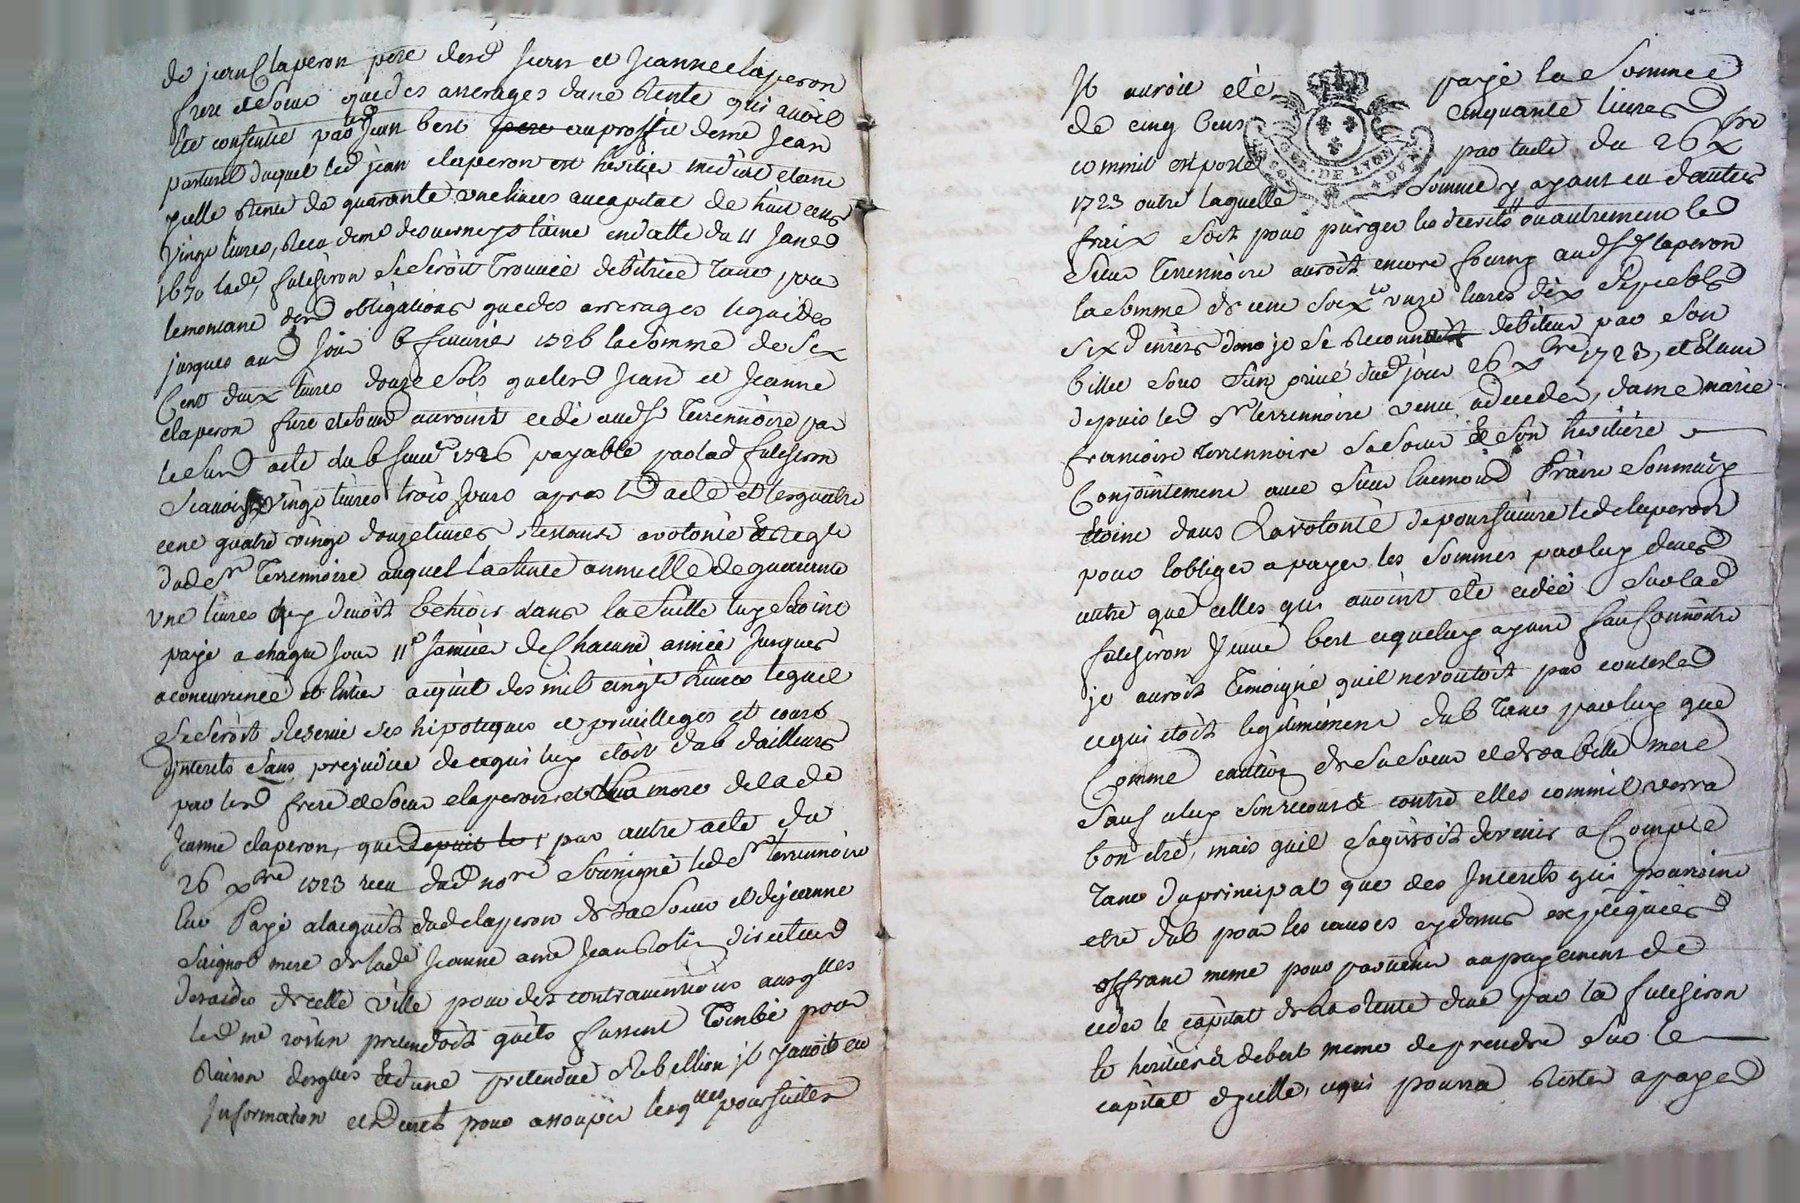 de jean Claperon pere desd jean et Jeanne claperon
frere et Soeur que des arrerages dune Rente qui avoit
ete consentie par led jean bert pere au proffit de me Jean
duquel led jean claperon est heritier mediat et dune
pille Rente de quarante une livres au capital de huit cens
vingt livres, Recu de me en datte du 11 Janer
1670 lade, fulchiron se Seroit trouvée debitrice tant pour
le montant desd obligations que des arrerages
jusques aud jour 6 fevrier 1726 la Somme de Six
Cent dix livres douze Sols que lesd Jean et Jeanne
claperon frere et Soeur auroint cedé aud Sr Terrennoire par
le Susd acte du 6 fevr 1726 payable par lad fulchiron
Scavoir vingt livres trois jours apres led acte et les quatre
cent quatre vingt douze livres Restant a volonté et
dud Sr Terrennoire auquel la Rente annuelle de quarante
une livres luy devoit dans la Suitte luy Estoint
payé a chaque jour 11e Janvier de Chacune année jusques
a concurrence et Entier acquit des mil vingt livres lequel
Se Seroit Reservé Ses hipoteques et privilleges et cours
d'jnterets Sans prejudice de ce qui luy etoit dub dailleurs
par lesd frere et Soeur claperon et la more de lade
Jeanne claperon, que depuis le, par autre acte du
26 xbre 1723 recu dud nore Soussigné led Sr terrennoire
Eut Payé a lacquit dud claperon de sa Soeur et de jeanne
mere de lade Jeanne a me Jean directeur
des aides de cette ville pour des contraventions ausqlles
led me pretendoit quils fussent Tombé pour
Raison desques Et dune pretendue Rebellion jl y avoit eu
Information et Decrets pour assoupir lesqlles poursuites
Jl auroit eté payé la Somme
de cinq Cens Cinquante livres
comme est porté par lacte du 26 xbre
GEN. DE LYON
1723 outre laquelle Somme y ayant eu dautres
fraix Soit pour purger les decrets ou autrement led
Sieur Terrennoire auroit encore fourny aud Sr Claperon
la Somme de cent Soixte onze livres dix Sept Sols
Six Deniers dont jl Se Reconnut debiteur par Son
billet Sous Sein privé dud jour 26 xbre 1723, et Etant
depuis led Sr terrennoire venu a deceder, dame marie
francoise terrennoire Sa Soeur Et Son heritiere
Conjointement avec Sieur Son mary
Etoint dans La volonté de poursuivre led claperon
pour lobliger a payer les Sommes par luy dues
autre que celles qui avoint eté cedée Sur lad
fulchiron Veuve bert a quoy luy ayant
jl auroit Temoigné quil ne vouloit pas contester
ce qui etoit legitimement dub tant par luy que
Comme caution de Sa Soeur et de Sa belle mere
Sauf a luy Son recours contre elles comme il verra
bon etre, mais quil Sagissoit de venir a Compte
Tant du principal que des Interets qui pouvoint
etre dub pour les causes cydevant expliquées
offrant meme pour parvenir au payement de
ceder le capital de la Rente due par la fulchiron
et heritiere debert meme de prendre Sur le
capital dycelle, ce qui pourra Rester a payer